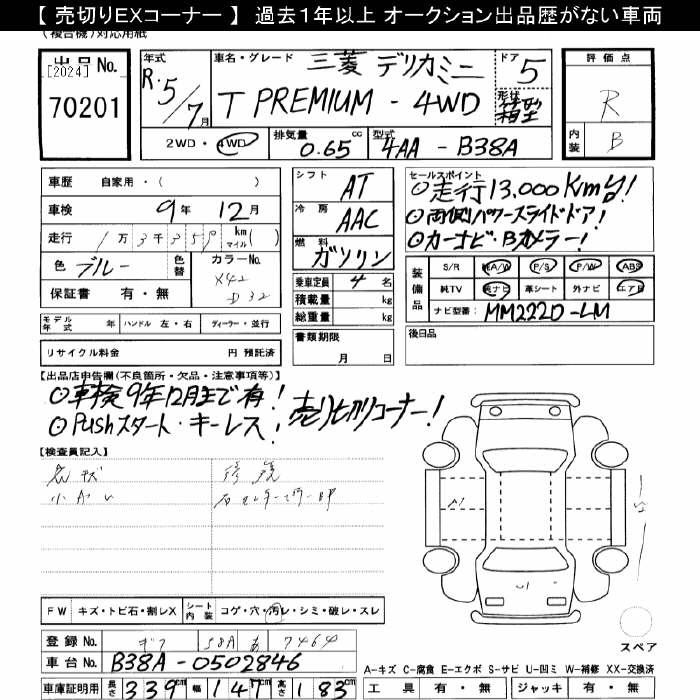 【 売切りEXコーナー 】 過去1年以上 オークション出品歴がない車両
(複合機)対応用紙
出品 No. [2024] 70201
年式 R.5/7月
車名・グレード 三菱 デリカミニ
T PREMIUM - 4WD
ドア 5
形状 箱型
2WD・4WD 排気量 0.65 cc 型式 4AA - B38A
評価点 R
内装 B
車歴 自家用・( )
車検 9年 12月
走行 1万3千359 km マイル( )
色 ブルー 色替 カラーNo. X42 D32
保証書 有・無
シフト AT
冷房 AAC
燃料 ガソリン
乗車定員 4 名
積載量 kg
総重量 kg
書類期限 月 日
セールスポイント
◎走行13,000Km台!
◎両側パワースライドドア!
◎カーナビ・Bカメラー!
装備品 S/R (純)A/W P/S P/W ABS
純TV 純ナビ 革シート 外ナビ エアB
ナビ型番: MM222D-LM
後日品
モデル年式 年 ハンドル 左・右 ディーラー・並行
リサイクル料金 円 預託済
【出品店申告欄(不良箇所・欠品・注意事項等)】
◎車検9年12月まで有!
◎Pushスタート・キーレス! 売り切りコーナー!
【検査員記入】
小キズ
F W キズ・トビ石・割レX シート内装 コゲ・穴・汚レ・シミ・破レ・スレ
登録 No. ギフ 58A あ 7464
車台 No. B38A-0502846
車庫証明用 長さ 339cm 幅 147cm 高さ 183cm
A1
U1
スペア
A-キズ C-腐食 E-エクボ S-サビ U-凹ミ W-補修 XX-交換済
工具 有・無 ジャッキ 有・無